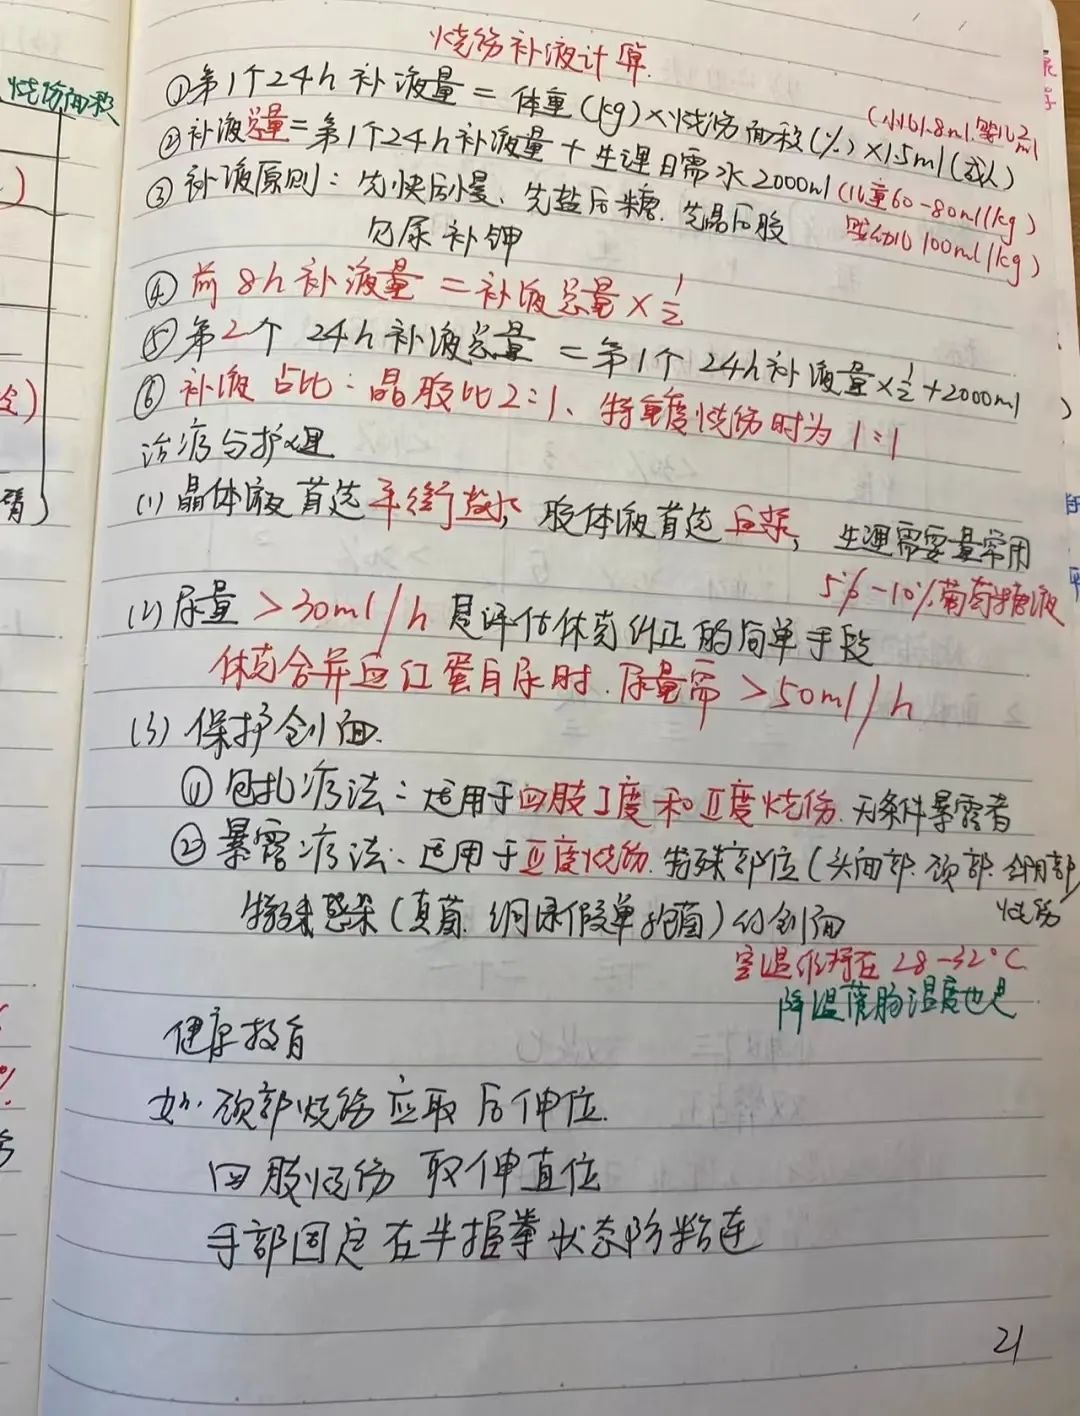 烧伤补液计算.
①第1个24h补液量=体重(kg)×烧伤面积(%)×1.5ml(成人)
(小儿1.8ml.婴儿2ml
②补液总量=第1个24h补液量+生理日需水2000ml(儿童60-80ml/kg)
婴幼儿100ml/kg)
③补液原则:先快后慢、先盐后糖.先晶后胶
见尿补钾
④前8h补液量=补液总量×1/2
⑤第2个24h补液总量=第1个24h补液量×1/2+2000ml
⑥补液占比:晶胶比2:1、特重度烧伤时为1:1
治疗与护理
(1)晶体液首选平衡盐水,胶体液首选血浆,生理需要量常用
5%-10%葡萄糖液
(2)尿量>30ml/h是评估休克纠正的简单手段
休克合并血红蛋白尿时.尿量需>50ml/h
(3)保护创面.
①包扎疗法:适用于四肢Ⅰ度和Ⅱ度烧伤.无条件暴露者
②暴露疗法:适用于Ⅲ度烧伤.特殊部位(头面部.颈部.会阴部)
烧伤
特殊感染(真菌.铜绿假单胞菌)的创面
室温保持在28-32°C
降温灌肠温度也是
健康教育
如.颈部烧伤应取后伸位.
四肢烧伤取伸直位
手部固定在半握拳状态防粘连
21
烧伤面积
臂)